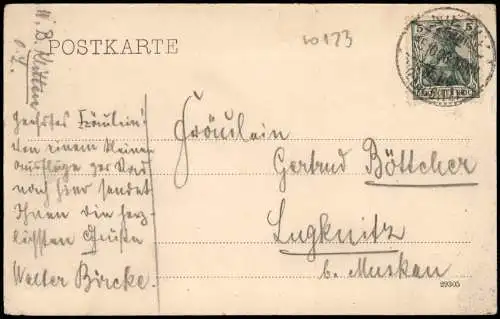 POSTKARTE
10173
5 5
Geehrtes Fräulein!
Von einem kleinen
Ausfluge per Rad
nach hier sendet
Ihnen die herz-
lichsten Grüße
Walter Bircke.
Fräulein
Gertrud Böttcher
Lugknitz
b. Muskau